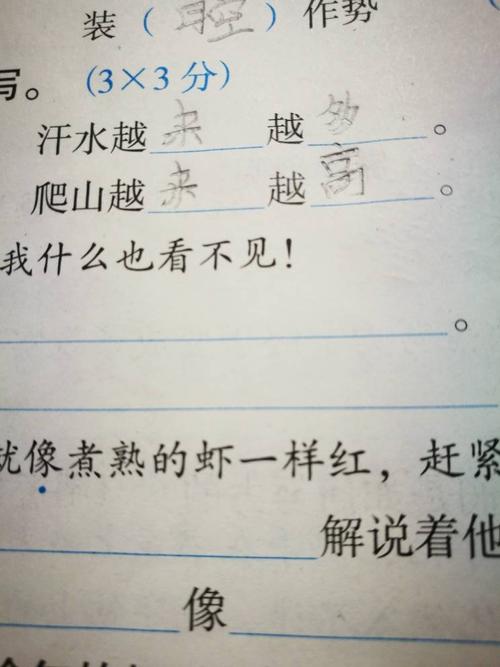 装（腔）作势
写。（3×3分）
汗水越来越多。
爬山越来越高。
我什么也看不见！
。
就像煮熟的虾一样红，赶紧
解说着他
像